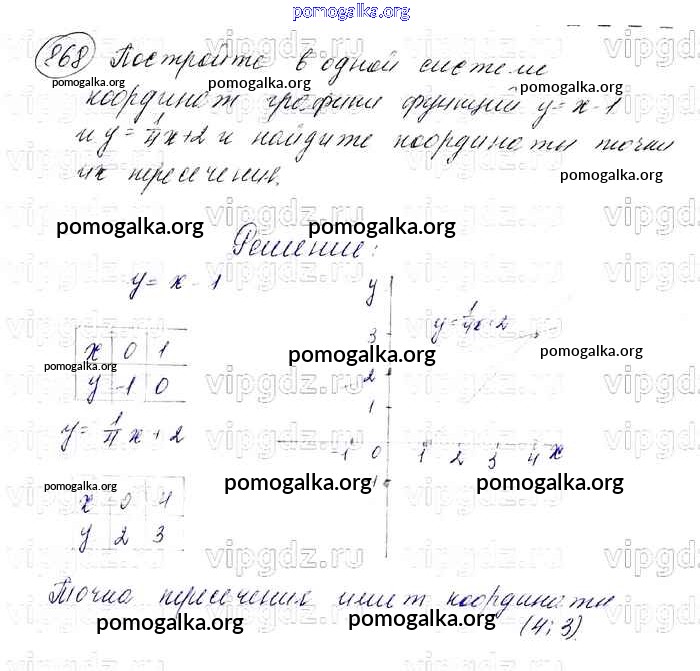 pomogalka.org
868 Постройте в одной системе
pomogalka.org pomogalka.org pomogalka.org
координат графики функций y = x - 1
и y = 1/4 x + 2 и найдите координаты точки
их пересечения.
pomogalka.org
vipgdz.ru
pomogalka.org pomogalka.org
Решение:
y = x - 1
y
y = 1/4 x + 2
3
x 0 1
pomogalka.org pomogalka.org pomogalka.org
y -1 0
2
1
y = 1/4 x + 2
-1 0 1 2 3 4 x
pomogalka.org pomogalka.org pomogalka.org
-1
x 0 4
y 2 3
vipgdz.ru
Точка пересечения имеет координаты
pomogalka.org pomogalka.org
(4; 3)